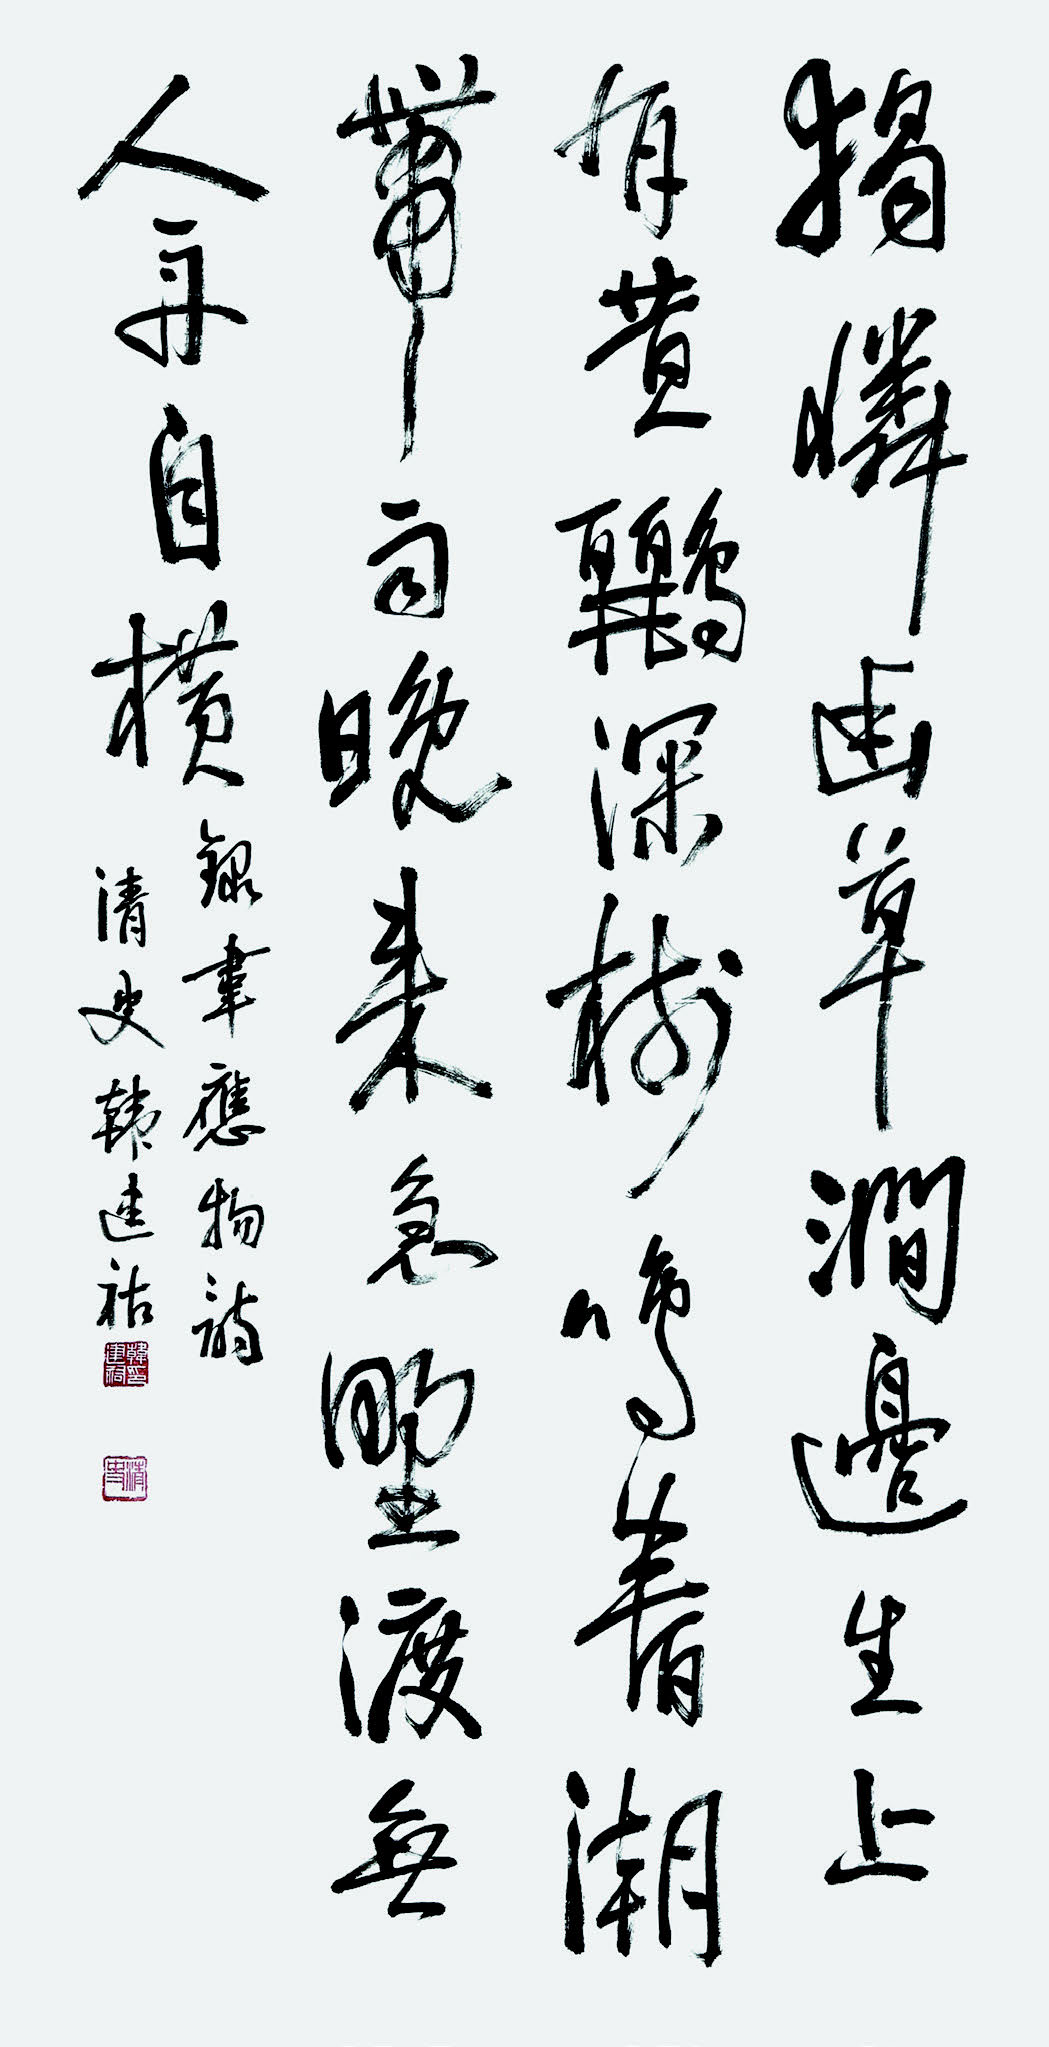 獨憐幽草澗邊生上
有黄鸝深樹鳴春潮
帶雨晚来急野渡無
人舟自橫
錄韋應物詩
清叟韓建祜
韓印建祜
清叟